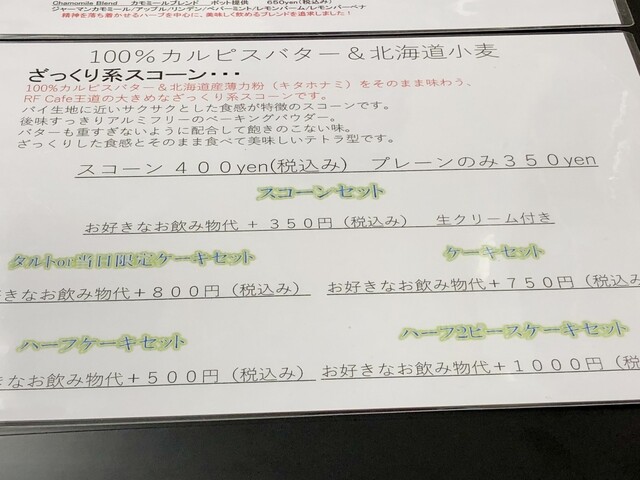 Chamomile Blend カモミールブレンド ポット提供 650yen(税込み)
ジャーマンカモミール/アップル/リンデン/ペパーミント/レモンバーム/レモンバーベナ
精神を落ち着かせるハーブを中心に、美味しく飲めるブレンドを追求しました!
100%カルピスバター&北海道小麦
ざっくり系スコーン・・・
100%カルピスバター&北海道産薄力粉(キタホナミ)をそのまま味わう、
RF Cafe王道の大きめなざっくり系スコーンです。
パイ生地に近いサクサクとした食感が特徴のスコーンです。
後味すっきりアルミフリーのベーキングパウダー。
バターも重すぎないように配合して飽きのこない味。
ざっくりした食感とそのまま食べて美味しいテトラ型です。
スコーン 400yen(税込み) プレーンのみ350yen
スコーンセット
お好きなお飲み物代+350円(税込み) 生クリーム付き
タルトor当日限定ケーキセット ケーキセット
きなお飲み物代+800円(税込み) お好きなお飲み物代+750円(税込
ハーフケーキセット ハーフ2ピースケーキセット
きなお飲み物代+500円(税込み) お好きなお飲み物代+1000円(税